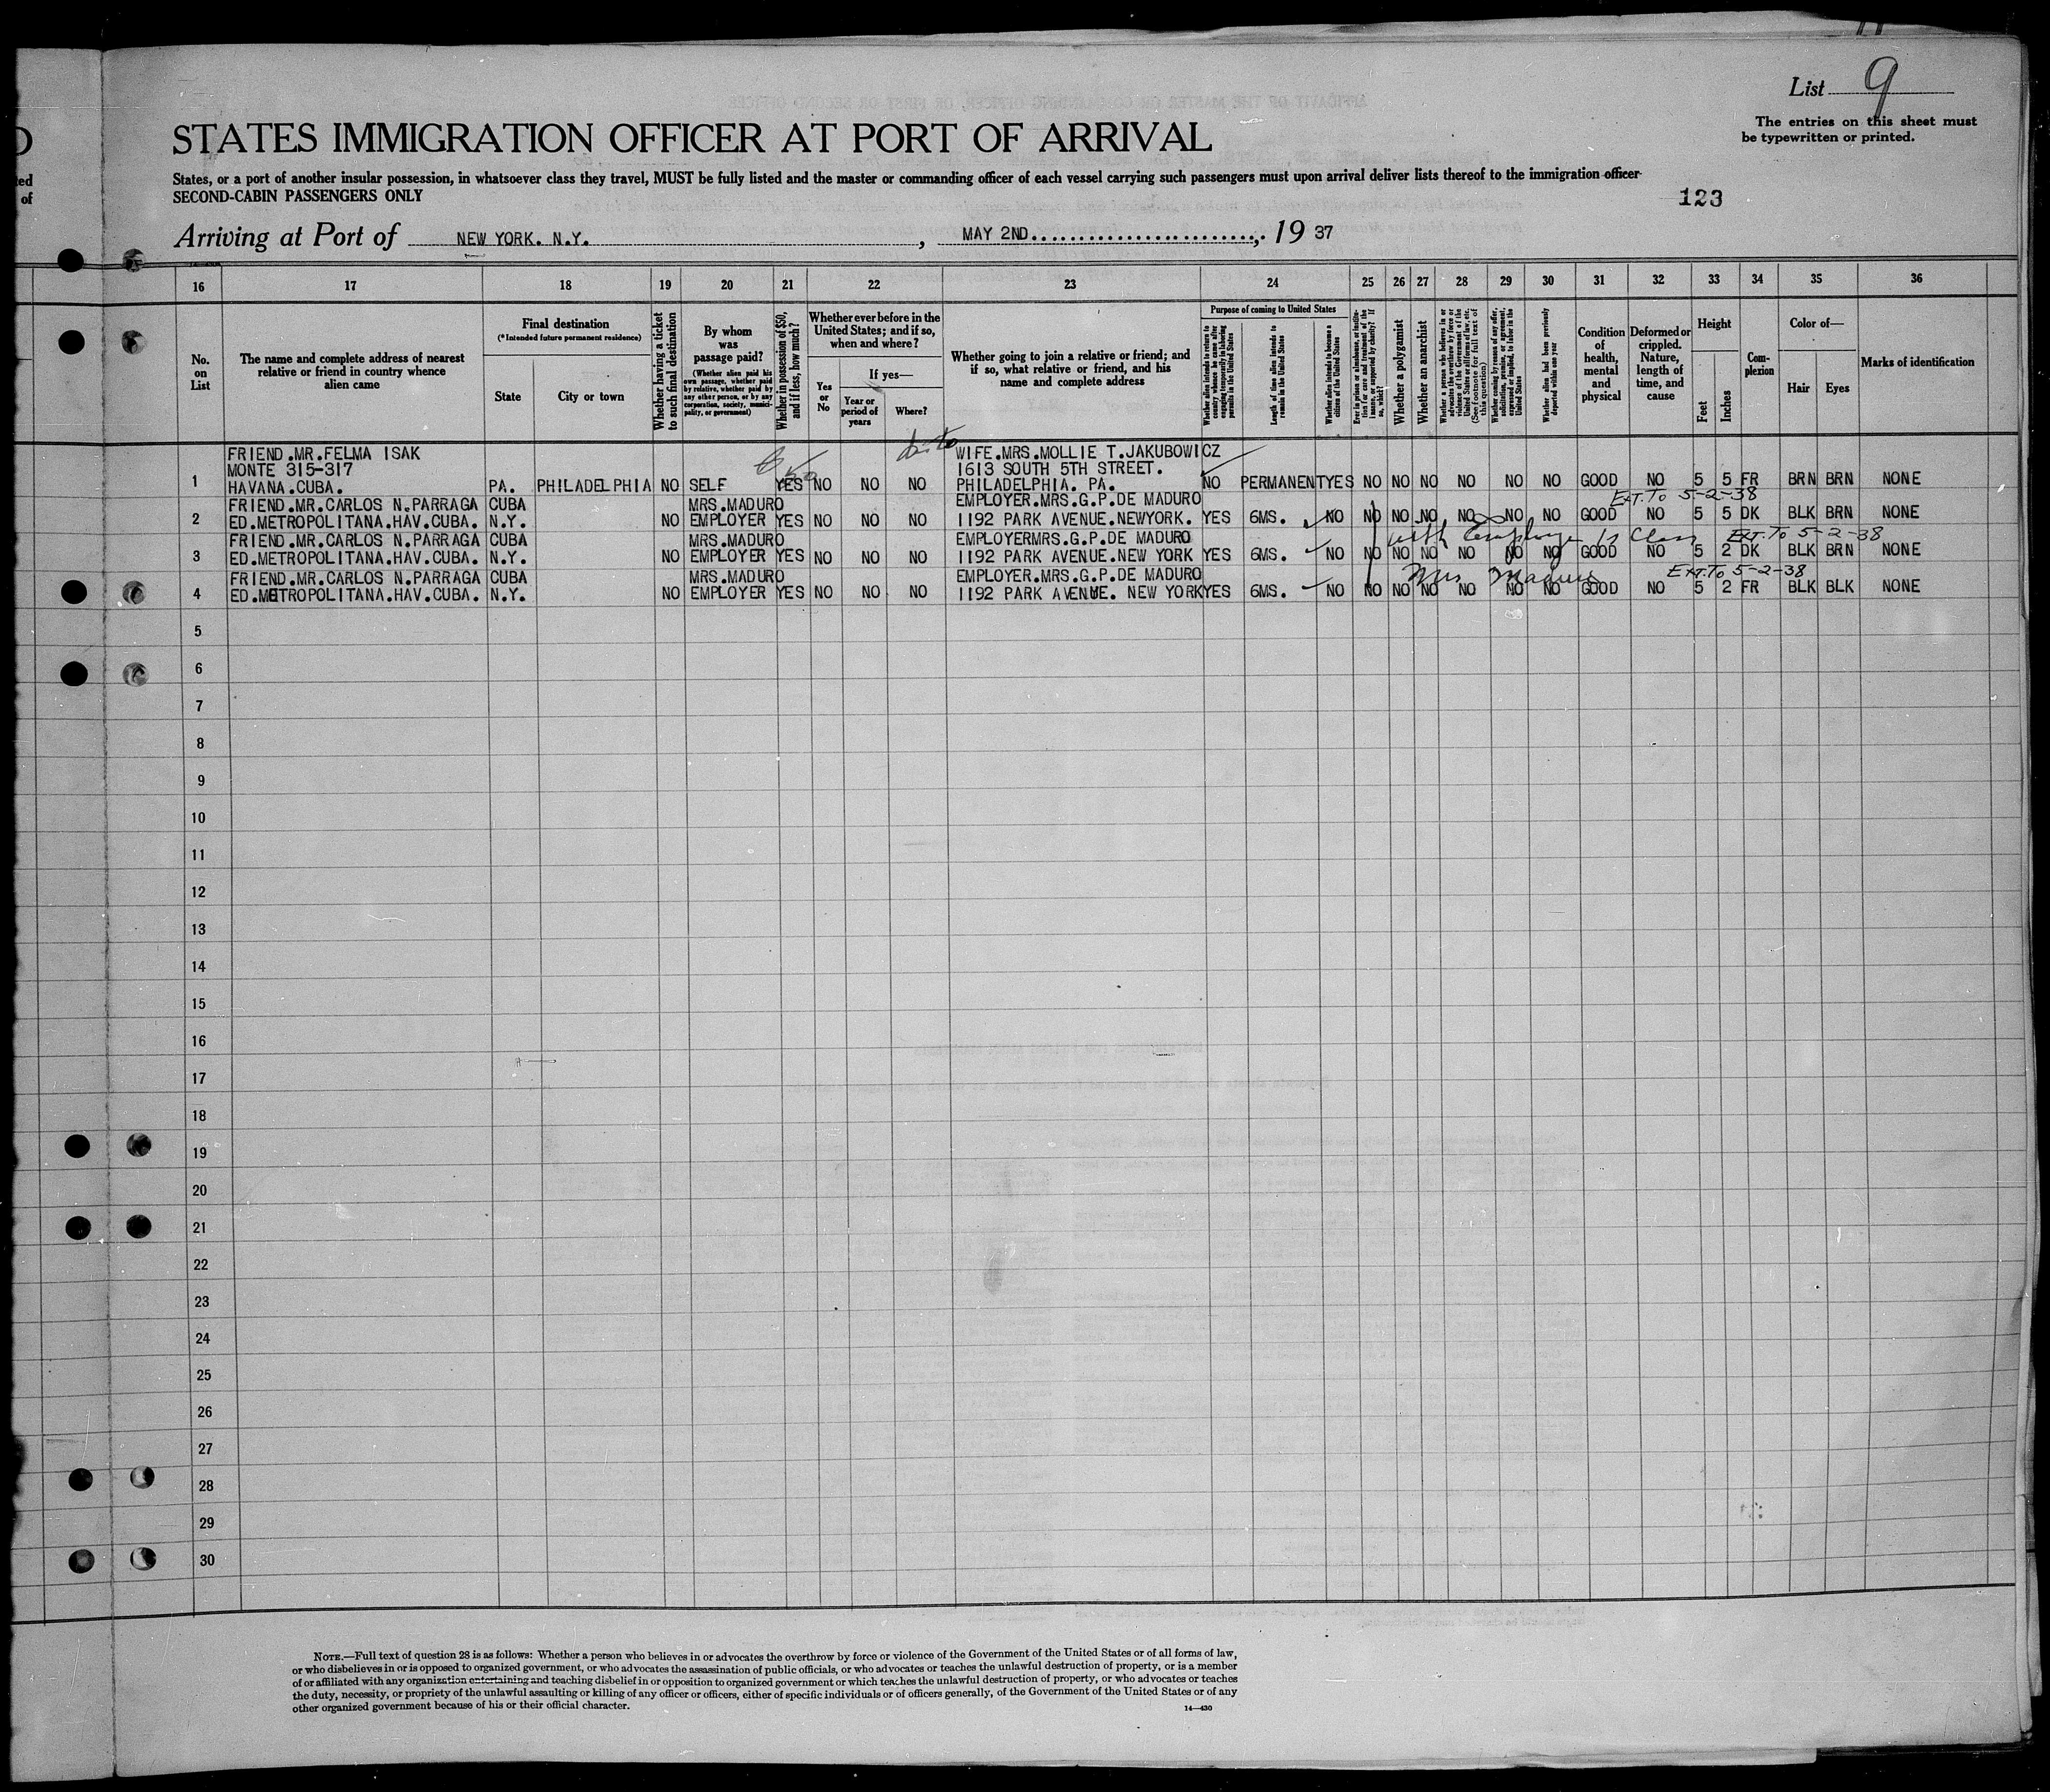 List 9
The entries on this sheet must
be typewritten or printed.
STATES IMMIGRATION OFFICER AT PORT OF ARRIVAL
States, or a port of another insular possession, in whatsoever class they travel, MUST be fully listed and the master or commanding officer of each vessel carrying such passengers must upon arrival deliver lists thereof to the immigration officer
SECOND-CABIN PASSENGERS ONLY
123
Arriving at Port of NEW YORK. N.Y. , MAY 2ND. , 19 37
16 17 18 19 20 21 22 23 24 25 26 27 28 29 30 31 32 33 34 35 36
No. on List
The name and complete address of nearest
relative or friend in country whence
alien came
Final destination
(*Intended future permanent residence)
State
City or town
Whether having a ticket
to such final destination
By whom
was
passage paid?
(Whether alien paid his
own passage, whether paid
by relative, whether paid by
any other person, or by any
corporation, society, munici-
pality, or government)
Whether in possession of $50,
and if less, how much?
Whether ever before in the
United States; and if so,
when and where?
Yes
or
No
If yes—
Year or
period of
years
Where?
Whether going to join a relative or friend; and
if so, what relative or friend, and his
name and complete address
Purpose of coming to United States
Whether alien intends to return to
country whence he came after
engaging temporarily in laboring
pursuits in the United States
Length of time alien intends to
remain in the United States
Whether alien intends to become a
citizen of the United States
Ever in prison or almshouse, or institu-
tion for care and treatment of the
insane, or supported by charity? If
so, which?
Whether a polygamist
Whether an anarchist
Whether a person who believes in or
advocates the overthrow by force or
violence of the Government of the
United States or all forms of law, etc.
(See footnote for full text of
this question)
Whether coming by reason of any offer,
solicitation, promise, or agreement,
expressed or implied, to labor in the
United States
Whether alien had been previously
deported within one year
Condition
of
health,
mental
and
physical
Deformed or
crippled.
Nature,
length of
time, and
cause
Height
Feet
Inches
Com-
plexion
Color of—
Hair
Eyes
Marks of identification
FRIEND.MR.FELMA ISAK WIFE.MRS.MOLLIE T.JAKUBOWICZ
MONTE 315-317 1613 SOUTH 5TH STREET.
1 HAVANA.CUBA. PA. PHILADELPHIA NO SELF YES NO NO NO PHILADELPHIA. PA. NO PERMANENT YES NO NO NO NO NO NO GOOD NO 5 5 FR BRN BRN NONE
FRIEND.MR.CARLOS N.PARRAGA CUBA MRS.MADURO EMPLOYER.MRS.G.P.DE MADURO EXT. TO 5-2-38
2 ED.METROPOLITANA.HAV.CUBA. N.Y. NO EMPLOYER YES NO NO NO 1192 PARK AVENUE.NEWYORK. YES 6MS. NO NO NO NO NO NO NO GOOD NO 5 5 DK BLK BRN NONE
FRIEND.MR.CARLOS N.PARRAGA CUBA MRS.MADURO EMPLOYERMRS.G.P.DE MADURO with Employer 1s Class EXT. TO 5-2-38
3 ED.METROPOLITANA.HAV.CUBA. N.Y. NO EMPLOYER YES NO NO NO 1192 PARK AVENUE.NEW YORK YES 6MS. NO NO NO NO NO NO NO GOOD NO 5 2 DK BLK BRN NONE
FRIEND.MR.CARLOS N.PARRAGA CUBA MRS.MADURO EMPLOYER.MRS.G.P.DE MADURO Mrs Maduro EXT. TO 5-2-38
4 ED.METROPOLITANA.HAV.CUBA. N.Y. NO EMPLOYER YES NO NO NO 1192 PARK AVENUE. NEW YORK YES 6MS. NO NO NO NO NO NO NO GOOD NO 5 2 FR BLK BLK NONE
5
6
7
8
9
10
11
12
13
14
15
16
17
18
19
20
21
22
23
24
25
26
27
28
29
30
NOTE.—Full text of question 28 is as follows: Whether a person who believes in or advocates the overthrow by force or violence of the Government of the United States or of all forms of law,
or who disbelieves in or is opposed to organized government, or who advocates the assassination of public officials, or who advocates or teaches the unlawful destruction of property, or is a member
of or affiliated with any organization entertaining and teaching disbelief in or opposition to organized government or which teaches the unlawful destruction of property, or who advocates or teaches
the duty, necessity, or propriety of the unlawful assaulting or killing of any officer or officers, either of specific individuals or of officers generally, of the Government of the United States or of any
other organized government because of his or their official character.
14—430